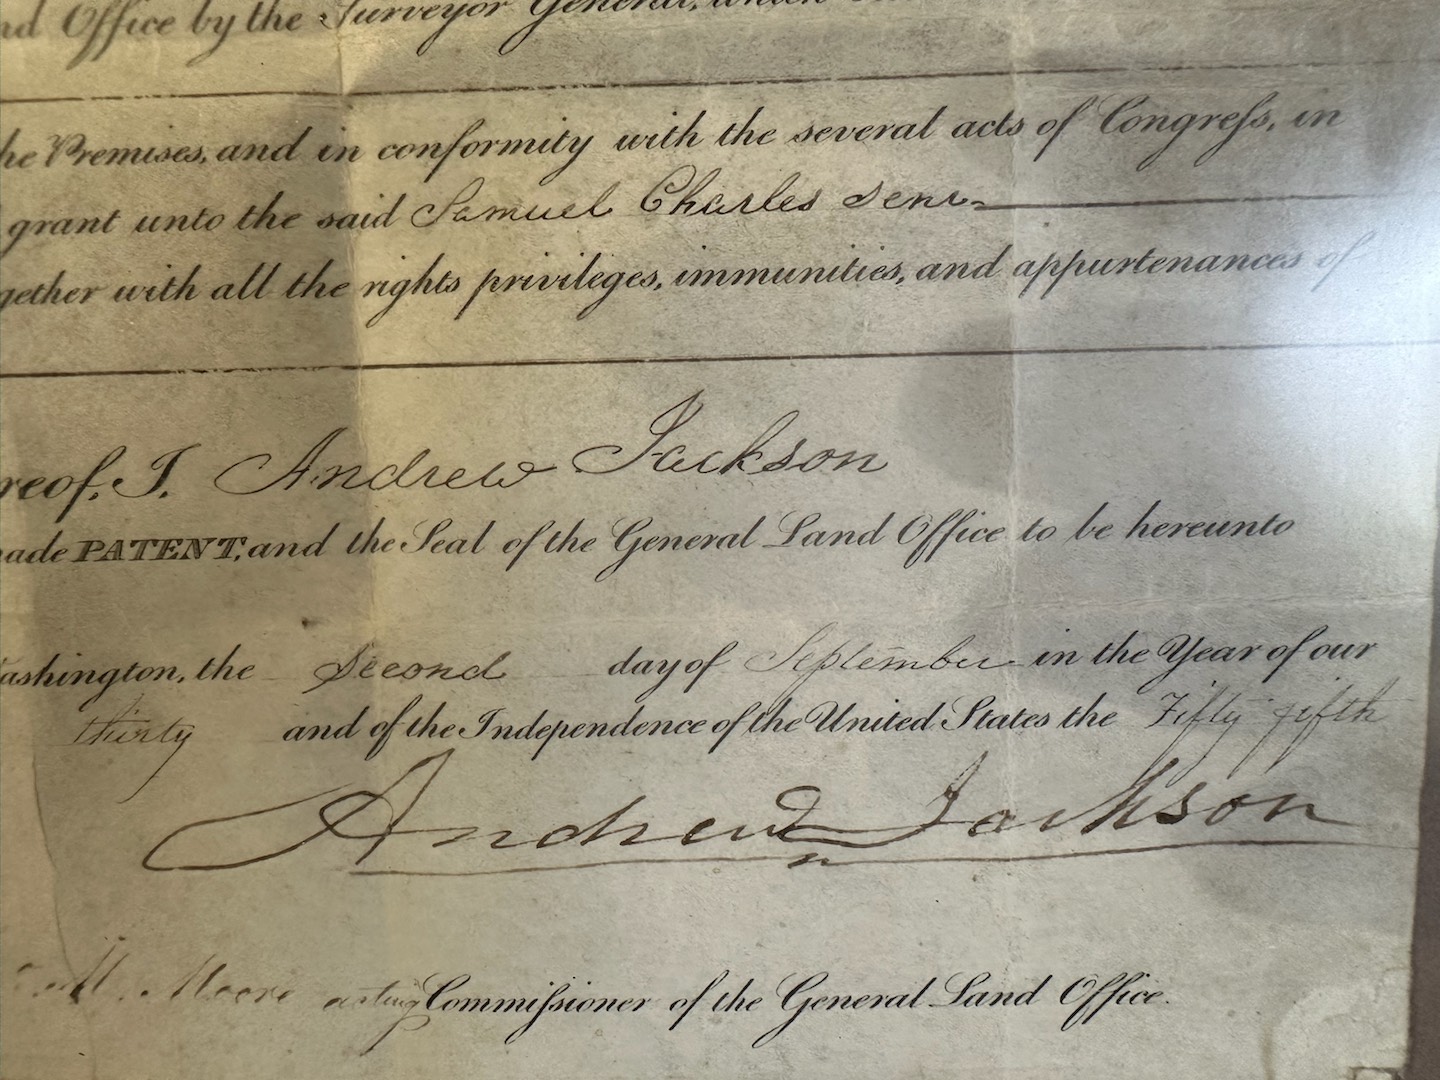 nd Office by the Surveyor General, which
he Premises, and in conformity with the several acts of Congreſs, in
grant unto the said Samuel Charles Senr
gether with all the rights privileges, immunities, and appurtenances of
reof, I, Andrew Jackson
ade PATENT, and the Seal of the General Land Office to be hereunto
ashington, the Second day of September in the Year of our
thirty and of the Independence of the United States the Fifty fifth
Andrew Jackson
M. Moore acting Commiſsioner of the General Land Office.